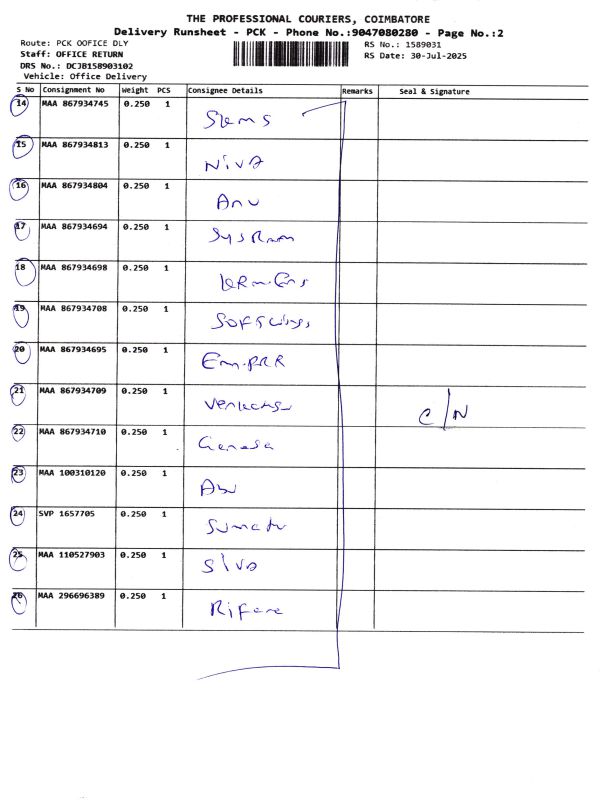 THE PROFESSIONAL COURIERS, COIMBATORE
Delivery Runsheet - PCK - Phone No.:9047080280 - Page No.:2
Route: PCK OOFICE DLY
RS No.: 1589031
Staff: OFFICE RETURN
RS Date: 30-Jul-2025
DRS No.: DCJB158903102
Vehicle: Office Delivery
S No Consignment No Weight PCS Consignee Details Remarks Seal & Signature
14 MAA 867934745 0.250 1
15 MAA 867934813 0.250 1 Niva
16 MAA 867934804 0.250 1 Anu
17 MAA 867934694 0.250 1
18 MAA 867934698 0.250 1
19 MAA 867934708 0.250 1
20 MAA 867934695 0.250 1
21 MAA 867934709 0.250 1 C/N
22 MAA 867934710 0.250 1
23 MAA 100310120 0.250 1
24 SVP 1657705 0.250 1
25 MAA 110527903 0.250 1 Siva
26 MAA 296696389 0.250 1